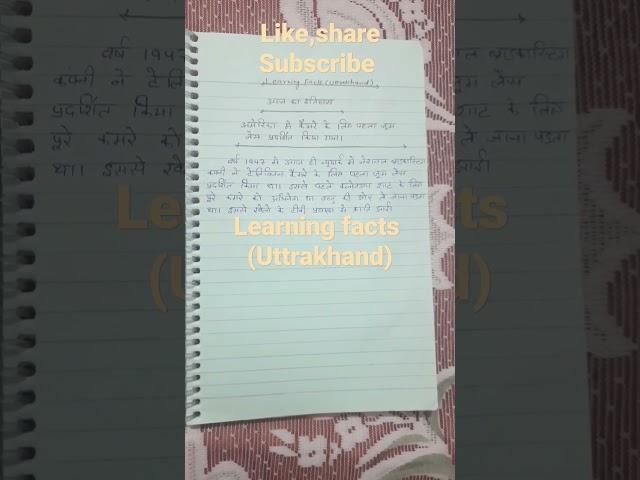 Like,share
Subscribe
Learning facts (Uttrakhand)
आज का इतिहास
अमेरिका में कैमरे के लिए पहला जूम
लेंस प्रदर्शित किया गया।
वर्ष 1947 में आज ही न्यूयार्क में नेशनल ब्राडकास्टिंग
कंपनी ने टेलिविजन कैमरे के लिए पहला जूम लेंस
प्रदर्शित किया था। इससे पहले क्लोजअप शाट के लिए
पूरे कमरे को अभिनेता या वस्तु की ओर ले जाना पड़ता
था। इससे खेलों के टीवी प्रसारण में क्रांति आयी
Learning facts
(Uttrakhand)